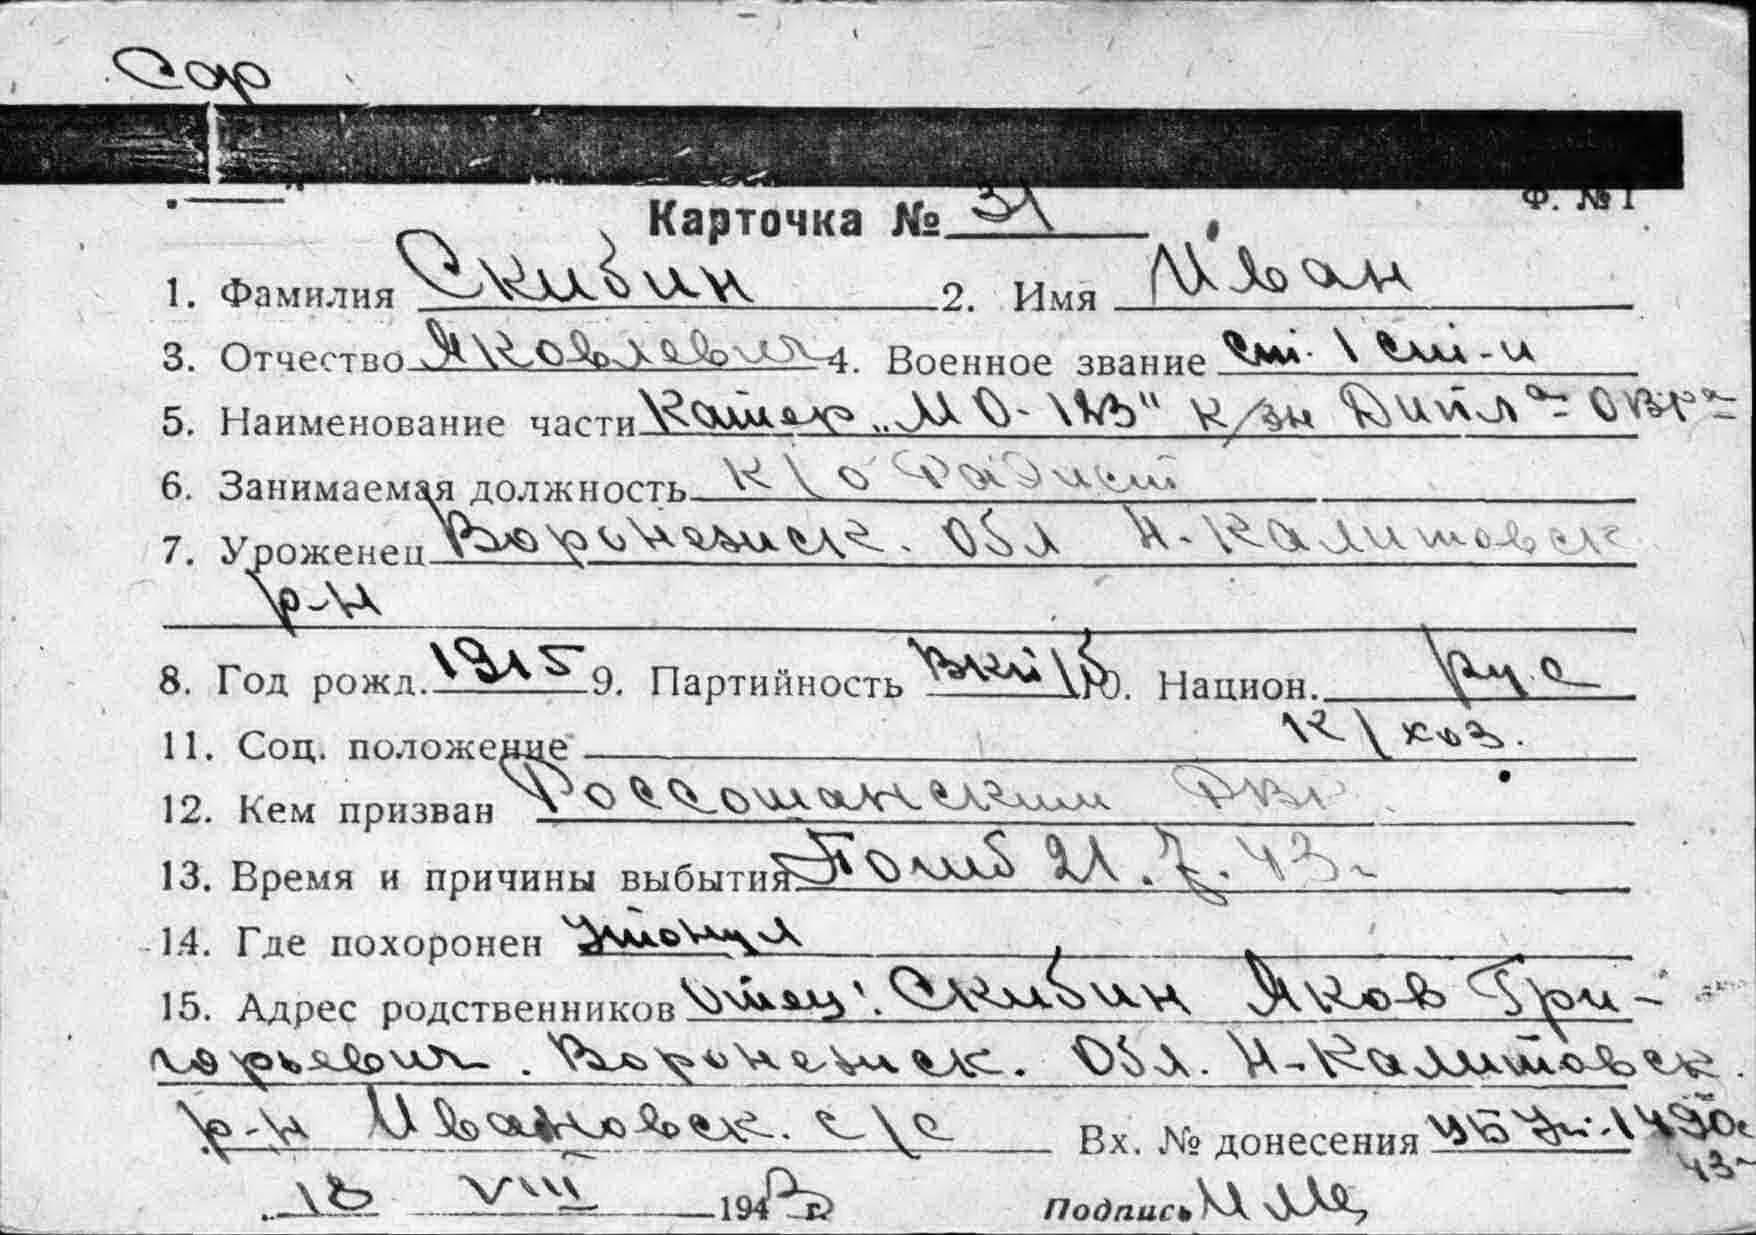 Сар
Ф. № 1
Карточка № 31
1. Фамилия Скибин 2. Имя Иван
3. Отчество Яковлевич 4. Военное звание ст. 1 ст-и
5. Наименование части Катер „МО-123" к/эн ОВРа
6. Занимаемая должность к/о Радист
7. Уроженец Воронежск. обл Н-Калитовск
р-н
8. Год рожд. 1915 9. Партийность ВКП/б 10. Национ. рус
11. Соц. положение к/хоз.
12. Кем призван Россошанским РВК
13. Время и причины выбытия Погиб 21.7.43г
14. Где похоронен Утонул
15. Адрес родственников Отец: Скибин Яков Гри-
горьевич. Воронежск. Обл. Н-Калитовск.
р-н Ивановск. с/с Вх. № донесения
43г
18 VIII 1943 г.
Подпись